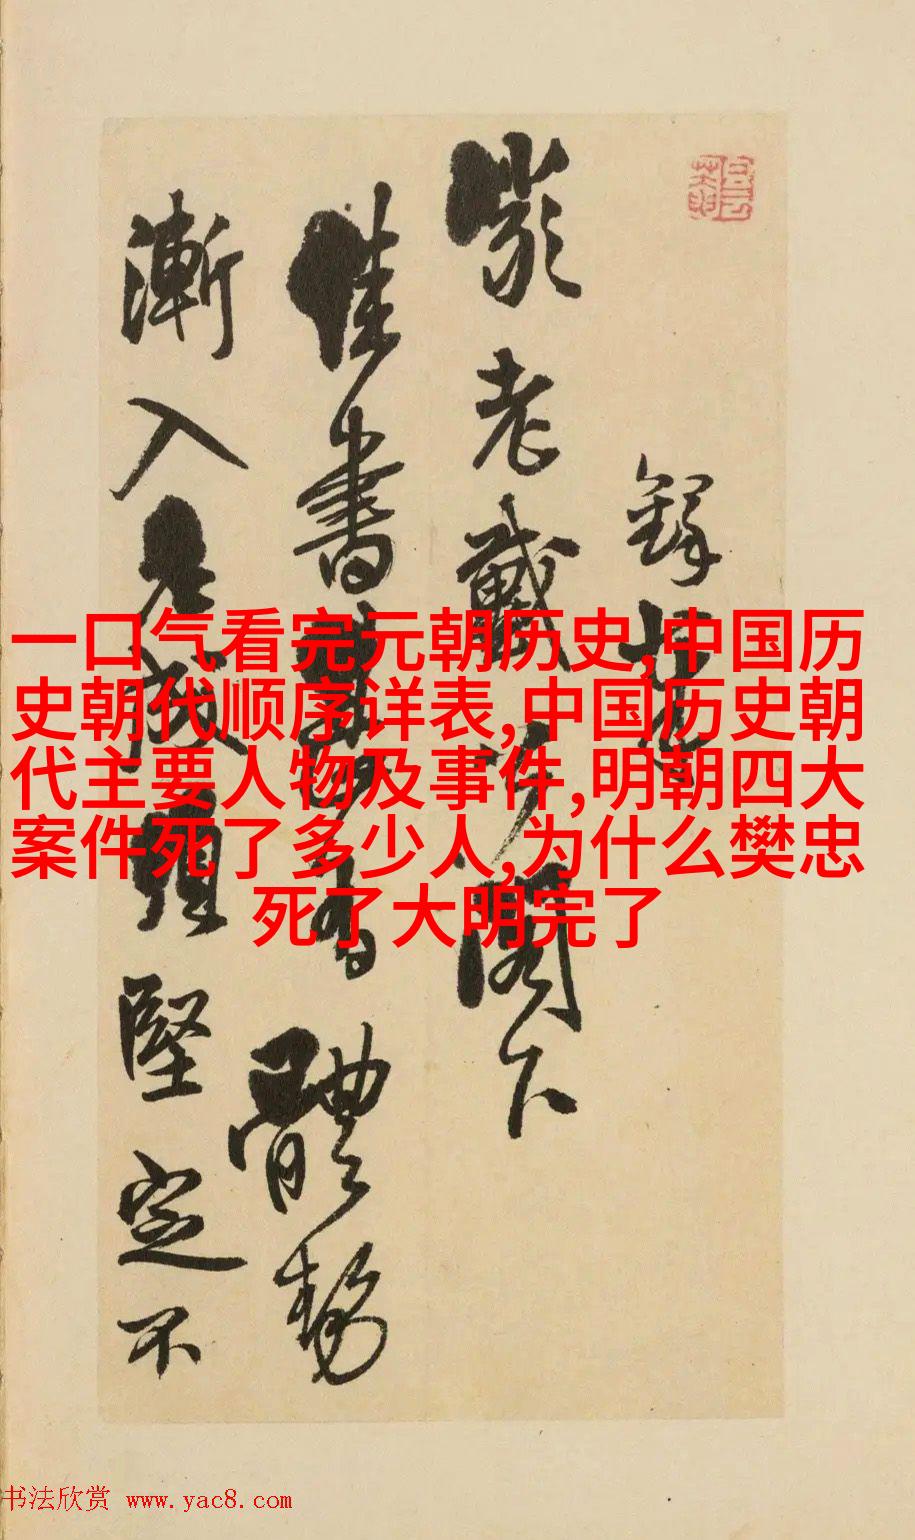 老戴閣下
佳書有體勢
漸入堅定不
一口气看完元朝历史,中国历
史朝代顺序详表,中国历史朝
代主要人物及事件,明朝四大
案件死了多少人,为什么樊忠
死了大明完了
书法欣赏 www.yac8.com